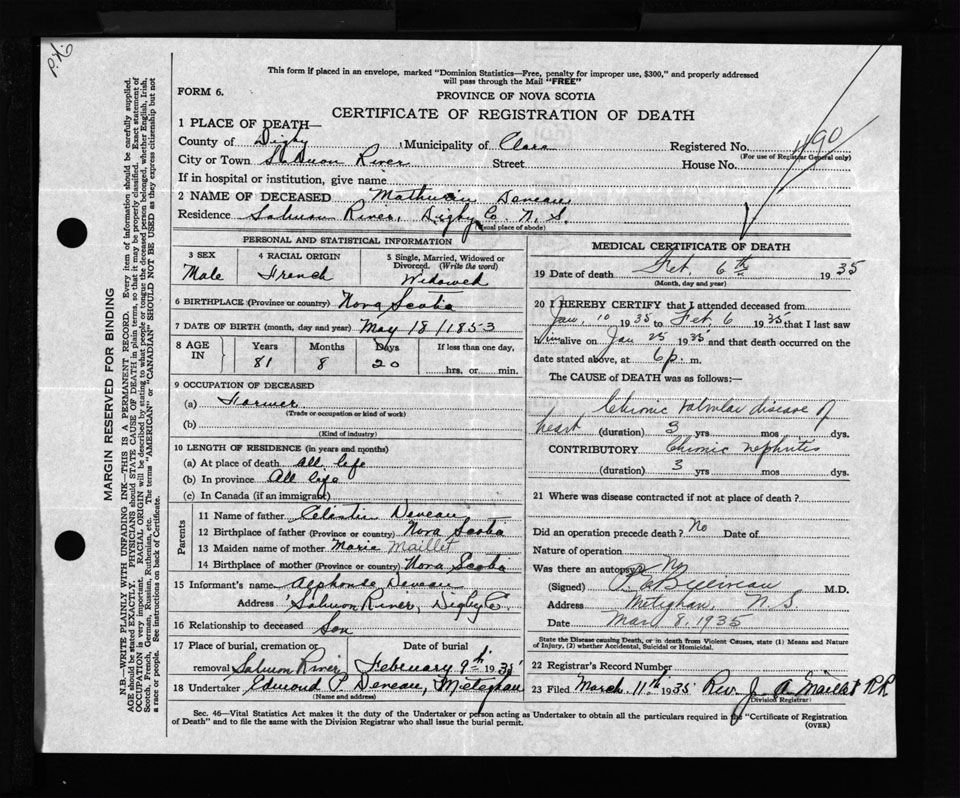 P.K.
This form if placed in an envelope, marked "Dominion Statistics—Free, penalty for improper use, $300," and properly addressed
will pass through the Mail "FREE"
FORM 6.
PROVINCE OF NOVA SCOTIA
CERTIFICATE OF REGISTRATION OF DEATH
1 PLACE OF DEATH—
County of Digby Municipality of Clare Registered No. 490
(For use of Registrar General only)
City or Town Salmon River Street House No.
If in hospital or institution, give name
2 NAME OF DECEASED Mathurin Deveau
Residence Salmon River, Digby Co. N. S.
(Usual place of abode)
PERSONAL AND STATISTICAL INFORMATION
3 SEX 4 RACIAL ORIGIN 5 Single, Married, Widowed or
Divorced. (Write the word)
Male French Widowed
6 BIRTHPLACE (Province or country) Nova Scotia
7 DATE OF BIRTH (month, day and year) May 18/1853
8 AGE IN Years Months Days If less than one day,
81 8 20 hrs. or min.
9 OCCUPATION OF DECEASED
(a) Farmer
(Trade or occupation or kind of work)
(b)
(Kind of industry)
10 LENGTH OF RESIDENCE (in years and months)
(a) At place of death All life
(b) In province All life
(c) In Canada (if an immigrant)
Parents
11 Name of father Célestin Deveau
12 Birthplace of father (Province or country) Nova Scotia
13 Maiden name of mother Marie Maillet
14 Birthplace of mother (Province or country) Nova Scotia
15 Informant's name Alphonse Deveau
Address Salmon River, Digby Co.
16 Relationship to deceased Son
17 Place of burial, cremation or Date of burial
removal Salmon River February 9th 1935
18 Undertaker Edmond P. Deveau, Meteghan
(Name and address)
MEDICAL CERTIFICATE OF DEATH
19 Date of death Feb. 6th 1935
(Month, day and year)
20 I HEREBY CERTIFY that I attended deceased from
Jan. 10 1935 to Feb. 6 1935 that I last saw
him alive on Jan 25 1935 and that death occurred on the
date stated above, at 6 p. m.
The CAUSE of DEATH was as follows:—
Chronic valvular disease of
heart (duration) 3 yrs mos dys.
CONTRIBUTORY Chronic nephritis
(duration) 3 yrs mos dys.
21 Where was disease contracted if not at place of death?
Did an operation precede death? No Date of
Nature of operation
Was there an autopsy? No
(Signed) M.D.
Address Meteghan, N. S.
Date Mar 8, 1935
State the Disease causing Death, or in death from Violent Causes, state (1) Means and Nature
of Injury, (2) whether Accidental, Suicidal or Homicidal.
22 Registrar's Record Number
23 Filed March 11th 1935 Rev. J. A. Maillet P.P.
Division Registrar
Sec. 46—Vital Statistics Act makes it the duty of the Undertaker or person acting as Undertaker to obtain all the particulars required in the "Certificate of Registration
of Death" and to file the same with the Division Registrar who shall issue the burial permit.
(OVER)
MARGIN RESERVED FOR BINDING
N.B.—WRITE PLAINLY WITH UNFADING INK—THIS IS A PERMANENT RECORD. Every item of information should be carefully supplied.
AGE should be stated EXACTLY. PHYSICIANS should STATE CAUSE OF DEATH in plain terms, so that it may be properly classified. Exact statement of
OCCUPATION is very important. RACIAL ORIGIN will be described by stating to what people or tongue the deceased person belonged, whether English, Irish,
Scotch, French, German, Russian, Ruthenian, etc. The terms "AMERICAN" or "CANADIAN" SHOULD NOT BE USED as they express citizenship but not
a race or people. See instructions on back of Certificate.